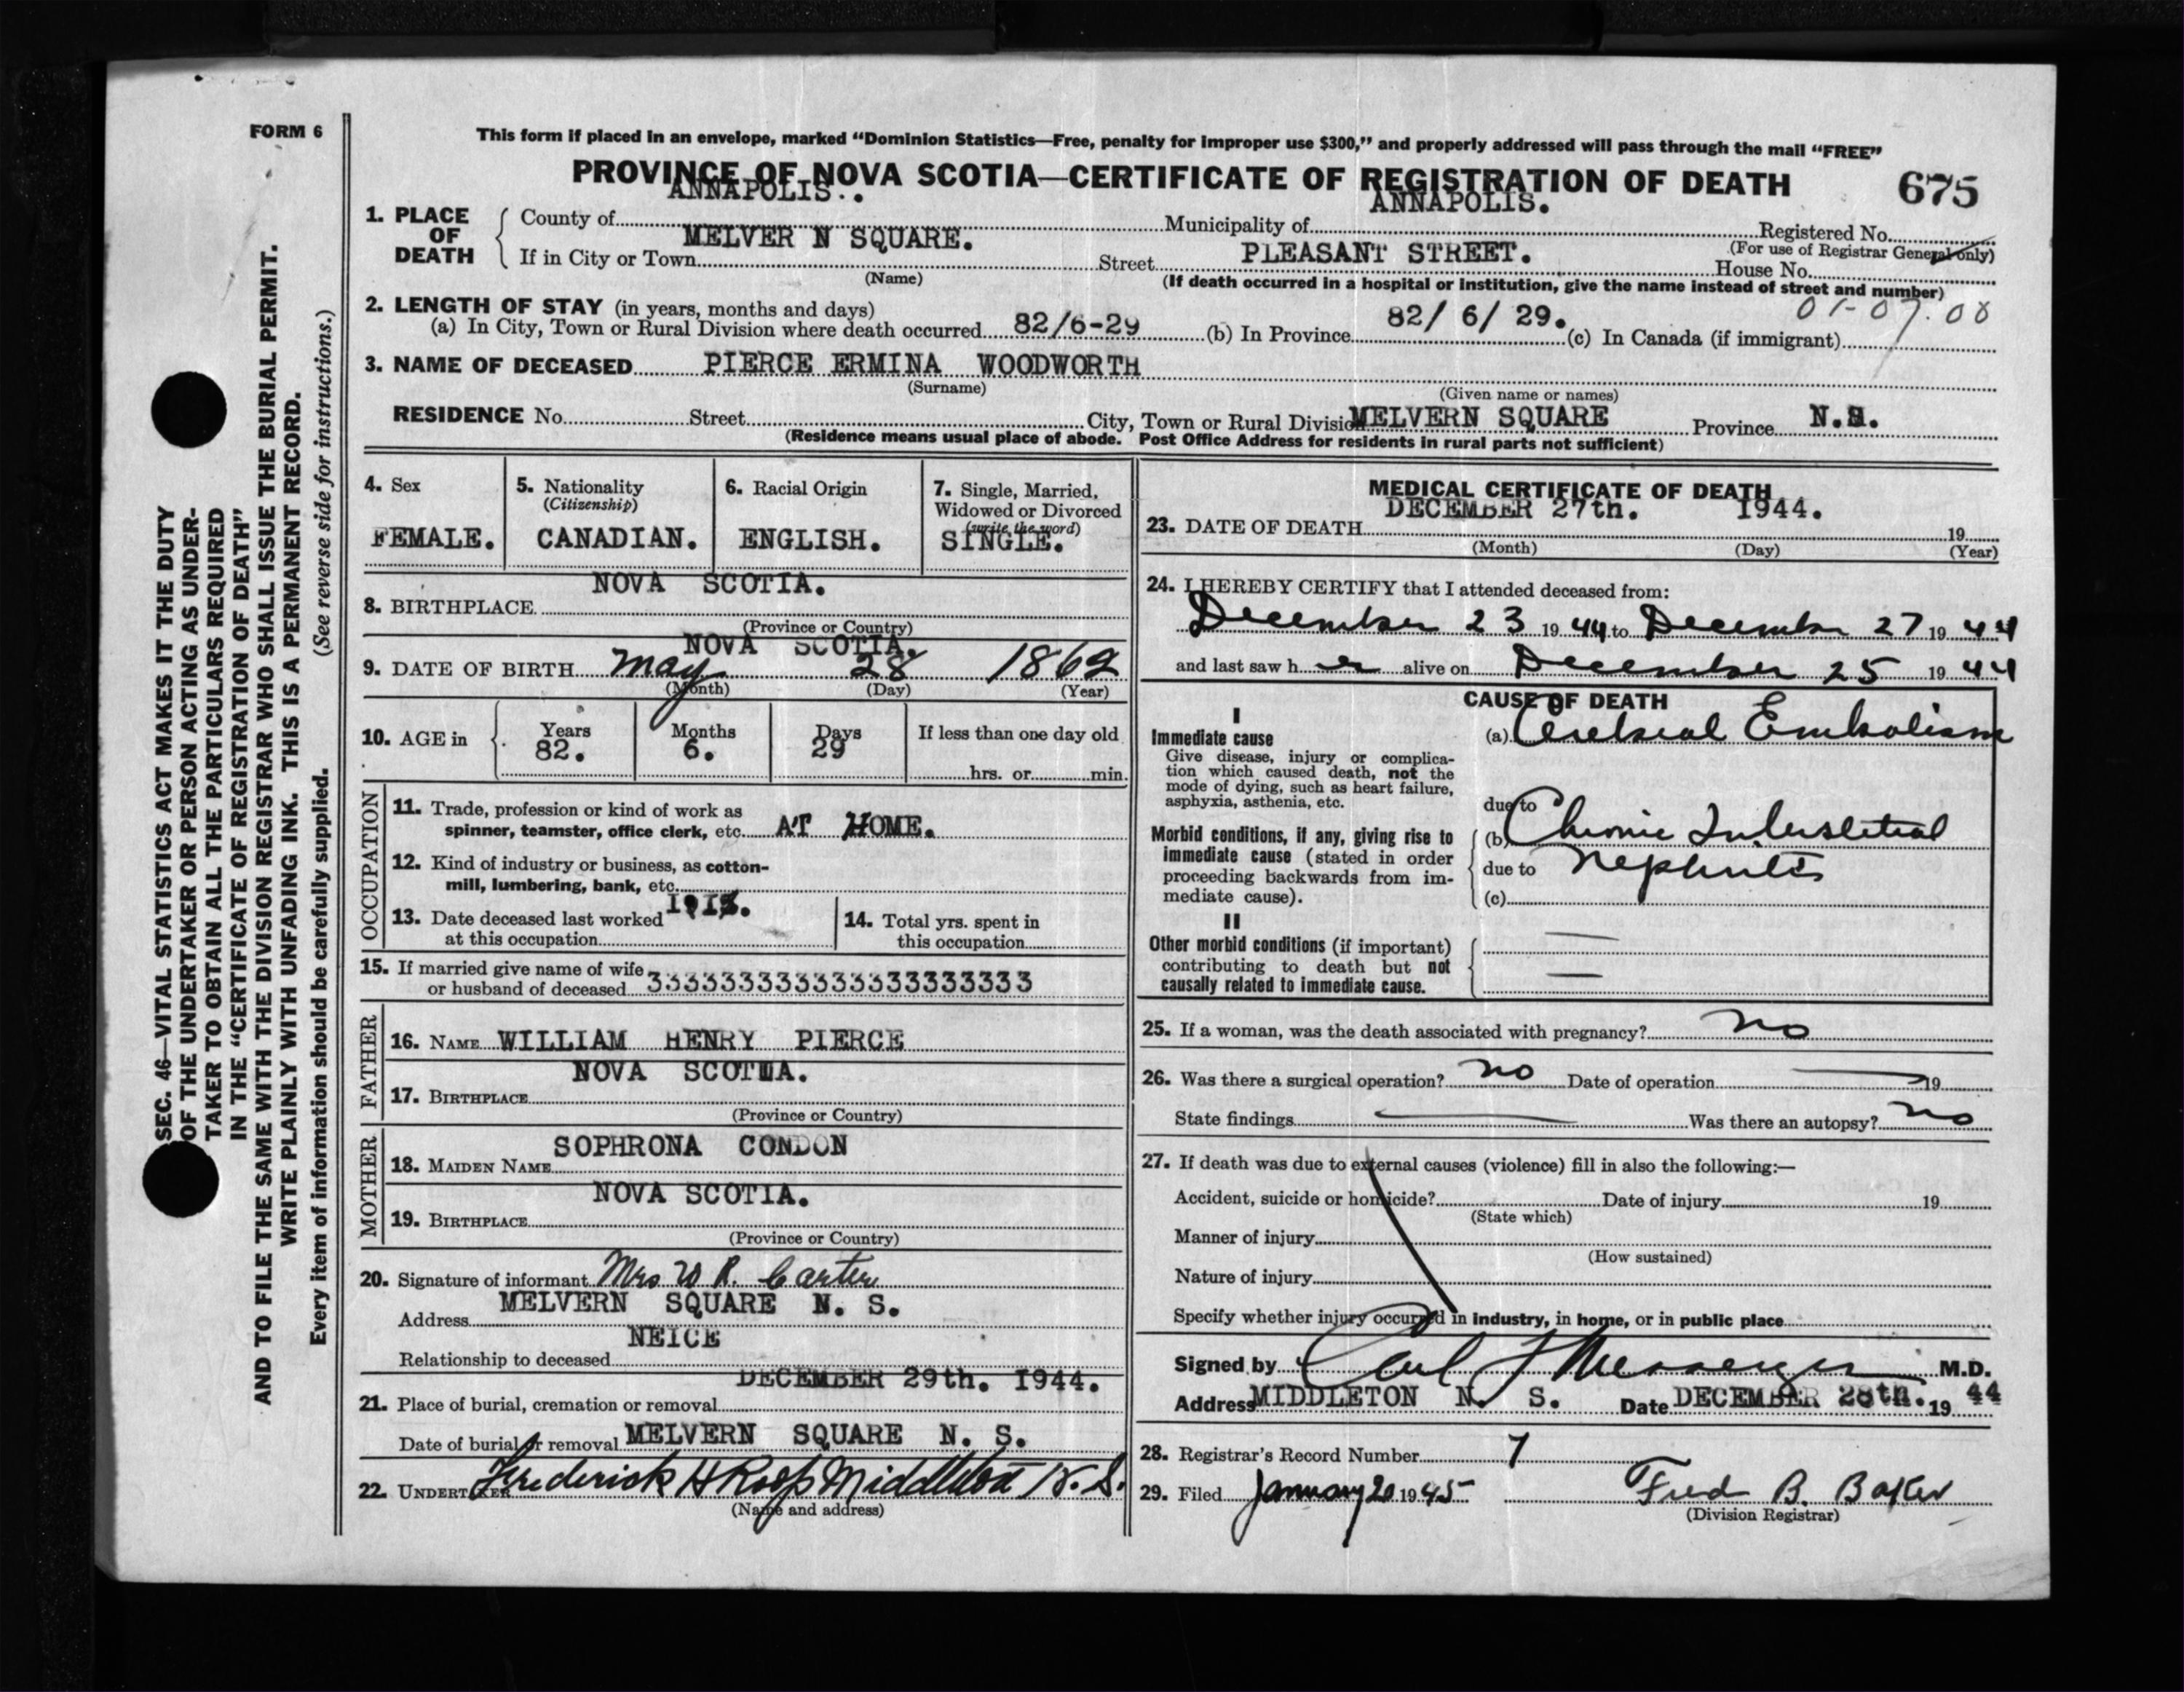 FORM 6
This form if placed in an envelope, marked “Dominion Statistics—Free, penalty for improper use $300,” and properly addressed will pass through the mail “FREE”
PROVINCE OF NOVA SCOTIA—CERTIFICATE OF REGISTRATION OF DEATH 675
1. PLACE OF DEATH
County of ANNAPOLIS. . Municipality of ANNAPOLIS. Registered No.
(For use of Registrar General only)
If in City or Town MELVER N SQUARE. Street PLEASANT STREET. House No.
(Name) (If death occurred in a hospital or institution, give the name instead of street and number)
2. LENGTH OF STAY (in years, months and days) 01-07.00
(a) In City, Town or Rural Division where death occurred 82/6-29 (b) In Province 82/ 6/ 29. (c) In Canada (if immigrant)
3. NAME OF DECEASED PIERCE ERMINA WOODWORTH
(Surname) (Given name or names)
RESIDENCE No. Street City, Town or Rural Divisio MELVERN SQUARE Province N.S.
(Residence means usual place of abode. Post Office Address for residents in rural parts not sufficient)
4. Sex
FEMALE.
5. Nationality
(Citizenship)
CANADIAN.
6. Racial Origin
ENGLISH.
7. Single, Married,
Widowed or Divorced
(write the word)
SINGLE.
8. BIRTHPLACE NOVA SCOTIA.
(Province or Country)
NOVA SCOTIA.
9. DATE OF BIRTH May 28 1862
(Month) (Day) (Year)
10. AGE in Years Months Days If less than one day old
82. 6. 29 hrs. or min.
OCCUPATION
11. Trade, profession or kind of work as
spinner, teamster, office clerk, etc. AT HOME.
12. Kind of industry or business, as cotton-
mill, lumbering, bank, etc.
13. Date deceased last worked
at this occupation
14. Total yrs. spent in
this occupation
15. If married give name of wife
or husband of deceased 3333333333333333333333
FATHER
16. NAME WILLIAM HENRY PIERCE
17. BIRTHPLACE NOVA SCOTIA.
(Province or Country)
MOTHER
18. MAIDEN NAME SOPHRONA CONDON
19. BIRTHPLACE NOVA SCOTIA.
(Province or Country)
20. Signature of informant Mrs W R. Carter
Address MELVERN SQUARE N. S.
Relationship to deceased NEICE
21. Place of burial, cremation or removal DECEMBER 29th. 1944.
Date of burial or removal MELVERN SQUARE N. S.
22. UNDERTAKER Frederick H Roop Middleton N. S.
(Name and address)
MEDICAL CERTIFICATE OF DEATH
23. DATE OF DEATH DECEMBER 27th. 1944. 19
(Month) (Day) (Year)
24. I HEREBY CERTIFY that I attended deceased from:
December 23 19 44 to December 27 19 44
and last saw h er alive on December 25 19 44
CAUSE OF DEATH
I
Immediate cause
Give disease, injury or complica-
tion which caused death, not the
mode of dying, such as heart failure,
asphyxia, asthenia, etc.
(a) Cerebral Embolism
due to
Morbid conditions, if any, giving rise to
immediate cause (stated in order
proceeding backwards from im-
mediate cause).
(b) Chronic Interstitial
due to Nephritis
(c)
II
Other morbid conditions (if important)
contributing to death but not
causally related to immediate cause.
25. If a woman, was the death associated with pregnancy? no
26. Was there a surgical operation? no Date of operation 19
State findings Was there an autopsy? no
27. If death was due to external causes (violence) fill in also the following:—
Accident, suicide or homicide? Date of injury 19
(State which)
Manner of injury
(How sustained)
Nature of injury
Specify whether injury occurred in industry, in home, or in public place
Signed by Carl F Messenger M.D.
Address MIDDLETON N. S. Date DECEMBER 28th. 19 44
28. Registrar's Record Number 7
29. Filed January 20 1945 Fred B. Baker
(Division Registrar)
SEC. 46—VITAL STATISTICS ACT MAKES IT THE DUTY
OF THE UNDERTAKER OR PERSON ACTING AS UNDER-
TAKER TO OBTAIN ALL THE PARTICULARS REQUIRED
IN THE “CERTIFICATE OF REGISTRATION OF DEATH”
AND TO FILE THE SAME WITH THE DIVISION REGISTRAR WHO SHALL ISSUE THE BURIAL PERMIT.
WRITE PLAINLY WITH UNFADING INK. THIS IS A PERMANENT RECORD.
Every item of information should be carefully supplied. (See reverse side for instructions.)